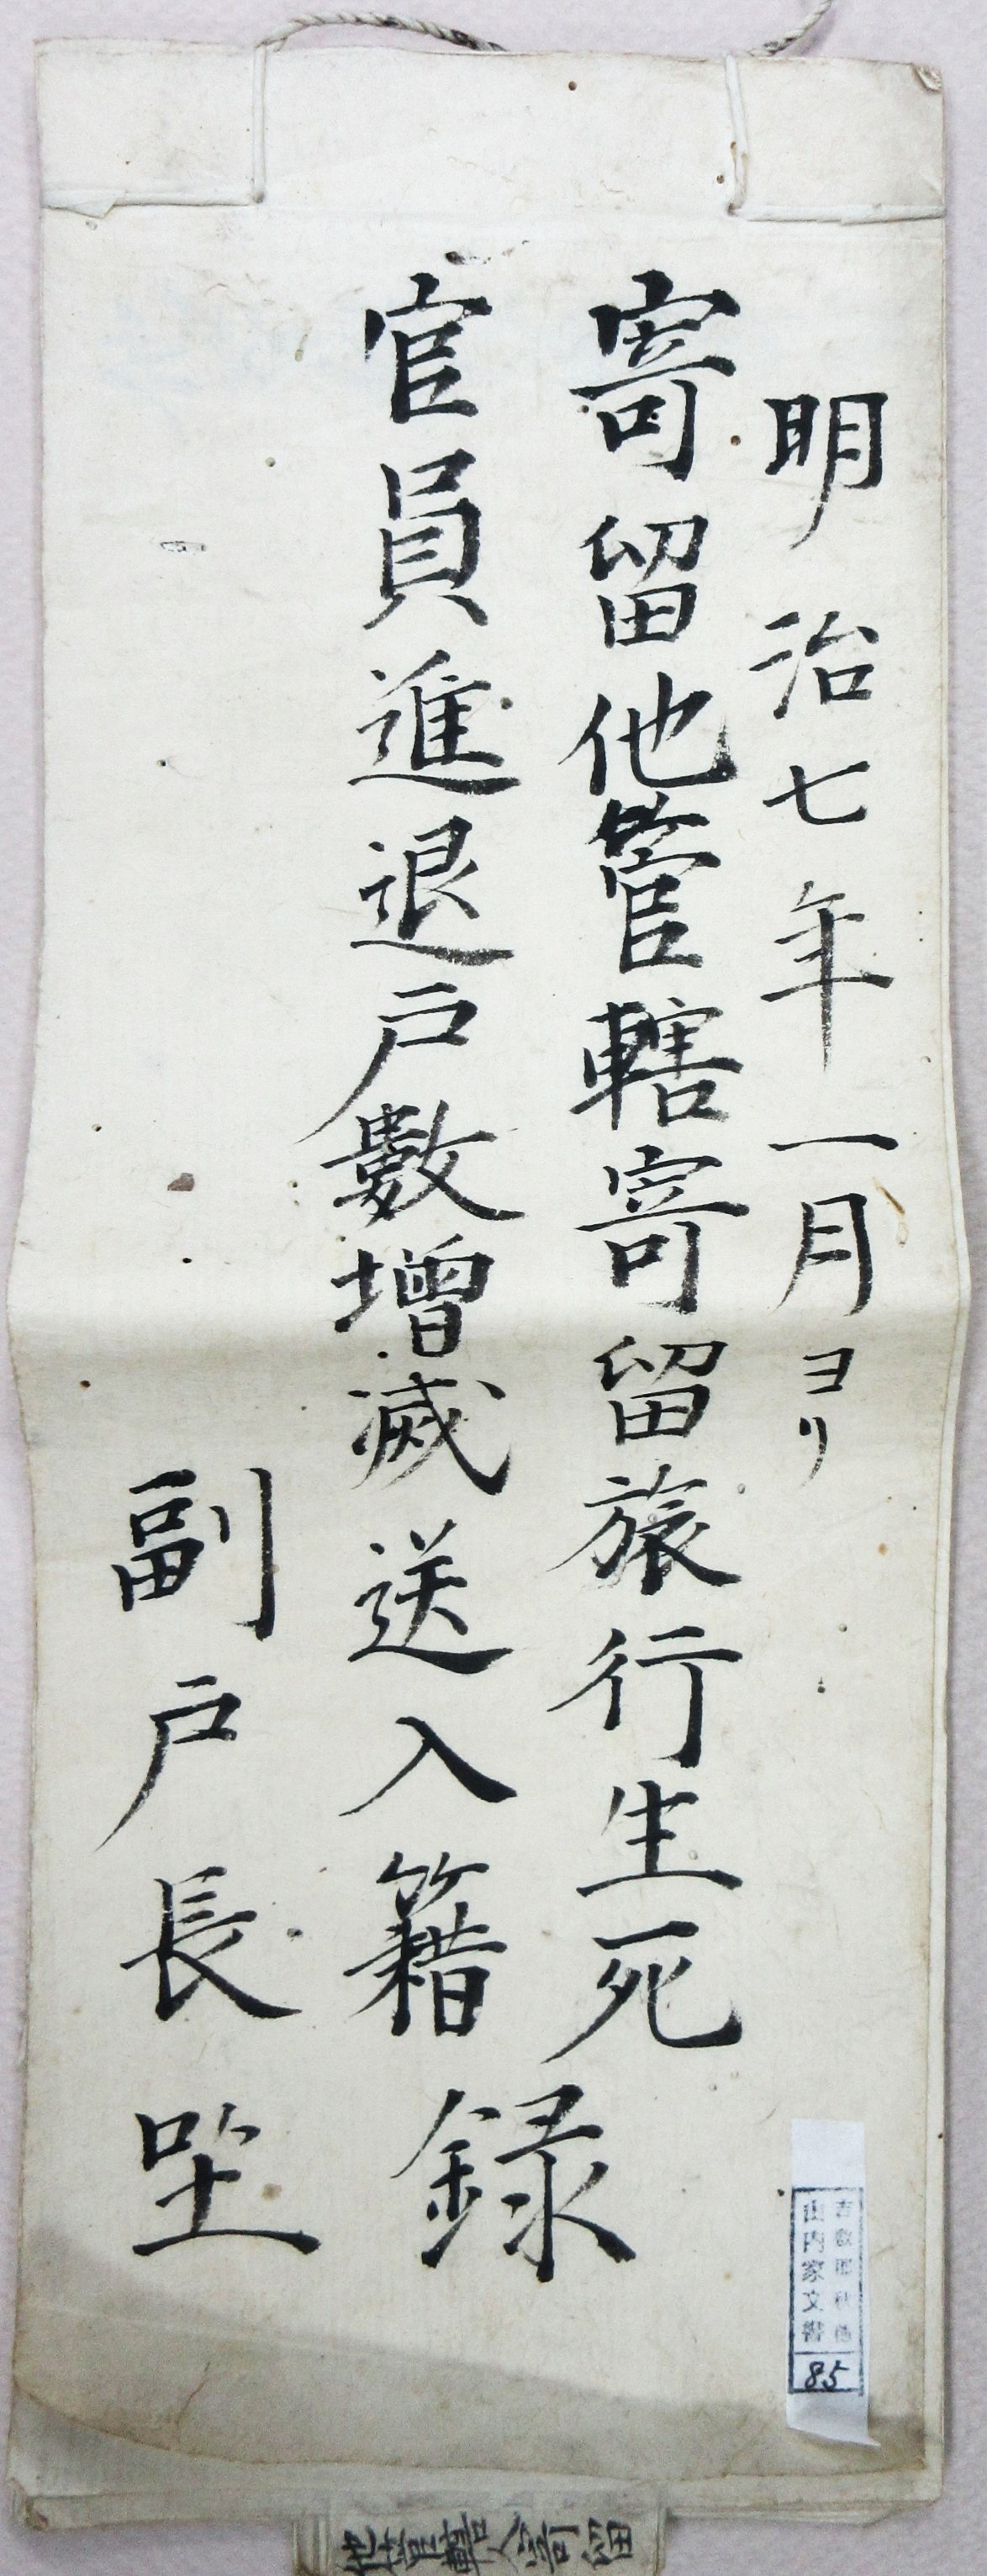 明治七年一月ヨリ
寄留他管轄寄留旅行生死
官員進退戸數增減送入籍
録
副戸長
吉敷郡秋穂
山内家文書
85
他管轄公寄留